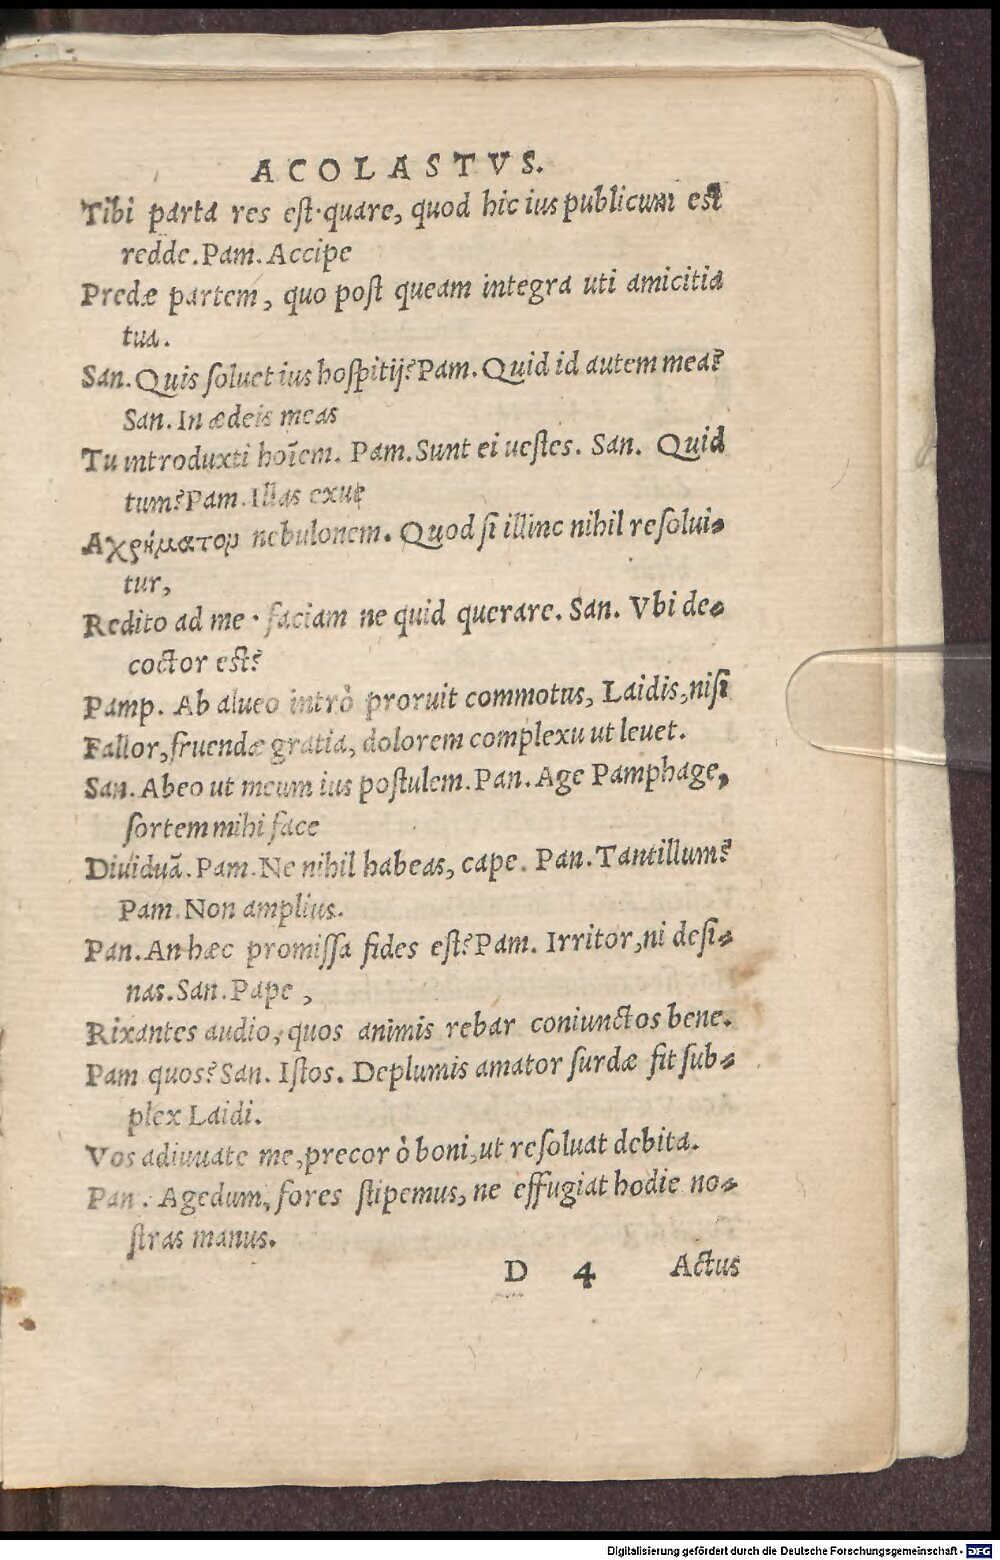 ACOLASTVS.
Tibi parta res eſt·quare, quod hic ius publicum est
redde. Pam. Accipe
Predæ partem, quo poſt queam integra uti amicitia
tua.
San. Quis ſoluet ius hoſpitij? Pam. Quid id autem mea?
San. In ædeis meas
Tu introduxti hoĩem. Pam. Sunt ei ueſtes. San. Quid
tum? Pam. Illas exue
Αχρήματορ nebulonem. Quod ſi illinc nihil reſolui-
tur,
Redito ad me · faciam ne quid querare. San. Vbi de-
coctor est?
Pamp. Ab alueo intrò proruit commotus, Laidis, niſi
Fallor, fruendæ gratia, dolorem complexu ut leuet.
San. Abeo ut meum ius poſtulem. Pan. Age Pamphage,
ſortem mihi face
Diuiduã. Pam. Ne nihil habeas, cape. Pan. Tantillum?
Pam. Non amplius.
Pan. An hæc promiſſa fides eſt? Pam. Irritor, ni deſi-
nas. San. Pape,
Rixantes audio, quos animis rebar coniunctos bene.
Pam quos? San. Iſtos. Deplumis amator ſurdæ fit ſub-
plex Laidi.
Vos adiuuate me, precor ò boni, ut reſoluat debita.
Pan. Agedum, fores ſtipemus, ne effugiat hodie no-
ſtras manus.
D 4 Actus
Digitalisierung gefördert durch die Deutsche Forschungsgemeinschaft - DFG